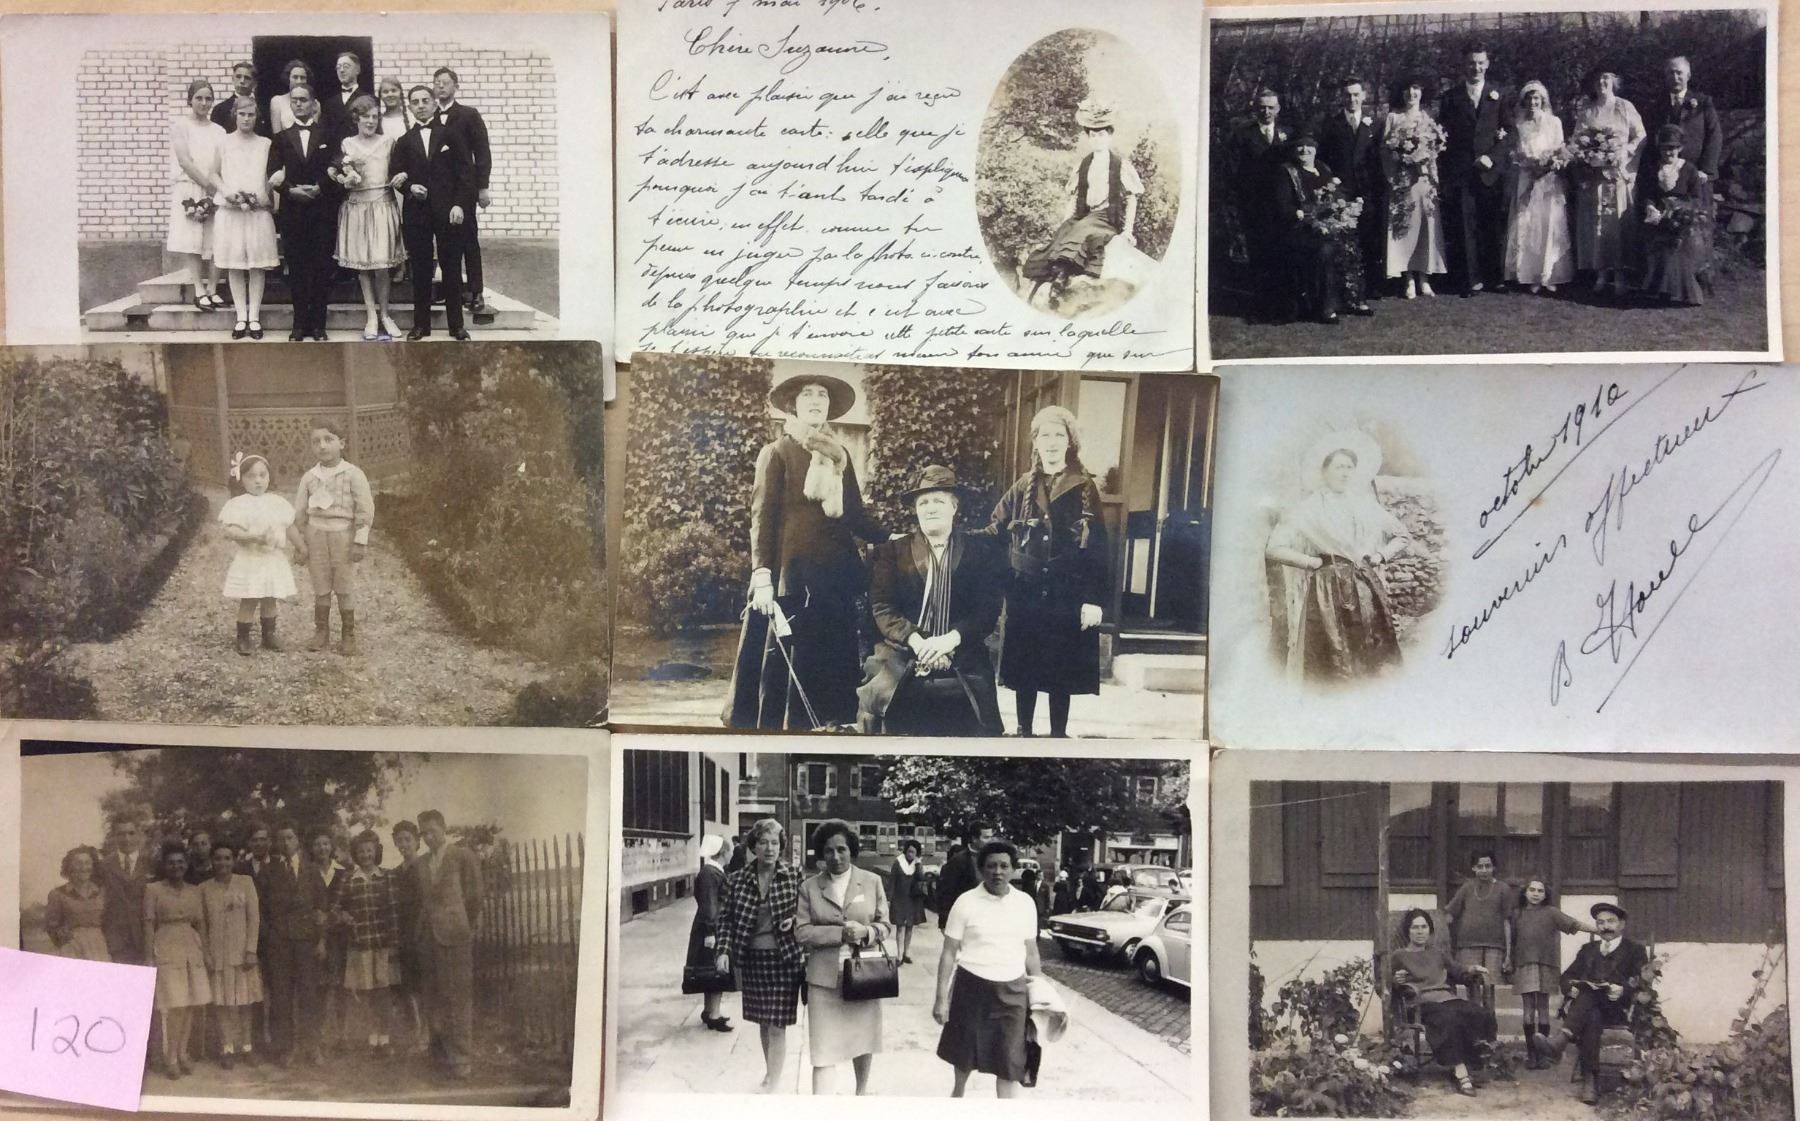 Paris 7 mai 1906.
Chère Suzanne,
C'est avec plaisir que j'ai reçu
ta charmante carte: celle que je
t'adresse aujourd'hui t'expliquera
pourquoi j'ai tant tardé à
t'écrire, en effet comme tu
peux en juger par la photo ci-contre,
depuis quelque temps nous faisons
de la photographie et c'est avec
plaisir que je t'envoie cette petite carte sur laquelle
je t'espère tu reconnaîtras mieux ton amie que sur
octobre 1910
souvenirs affectueux
B
120